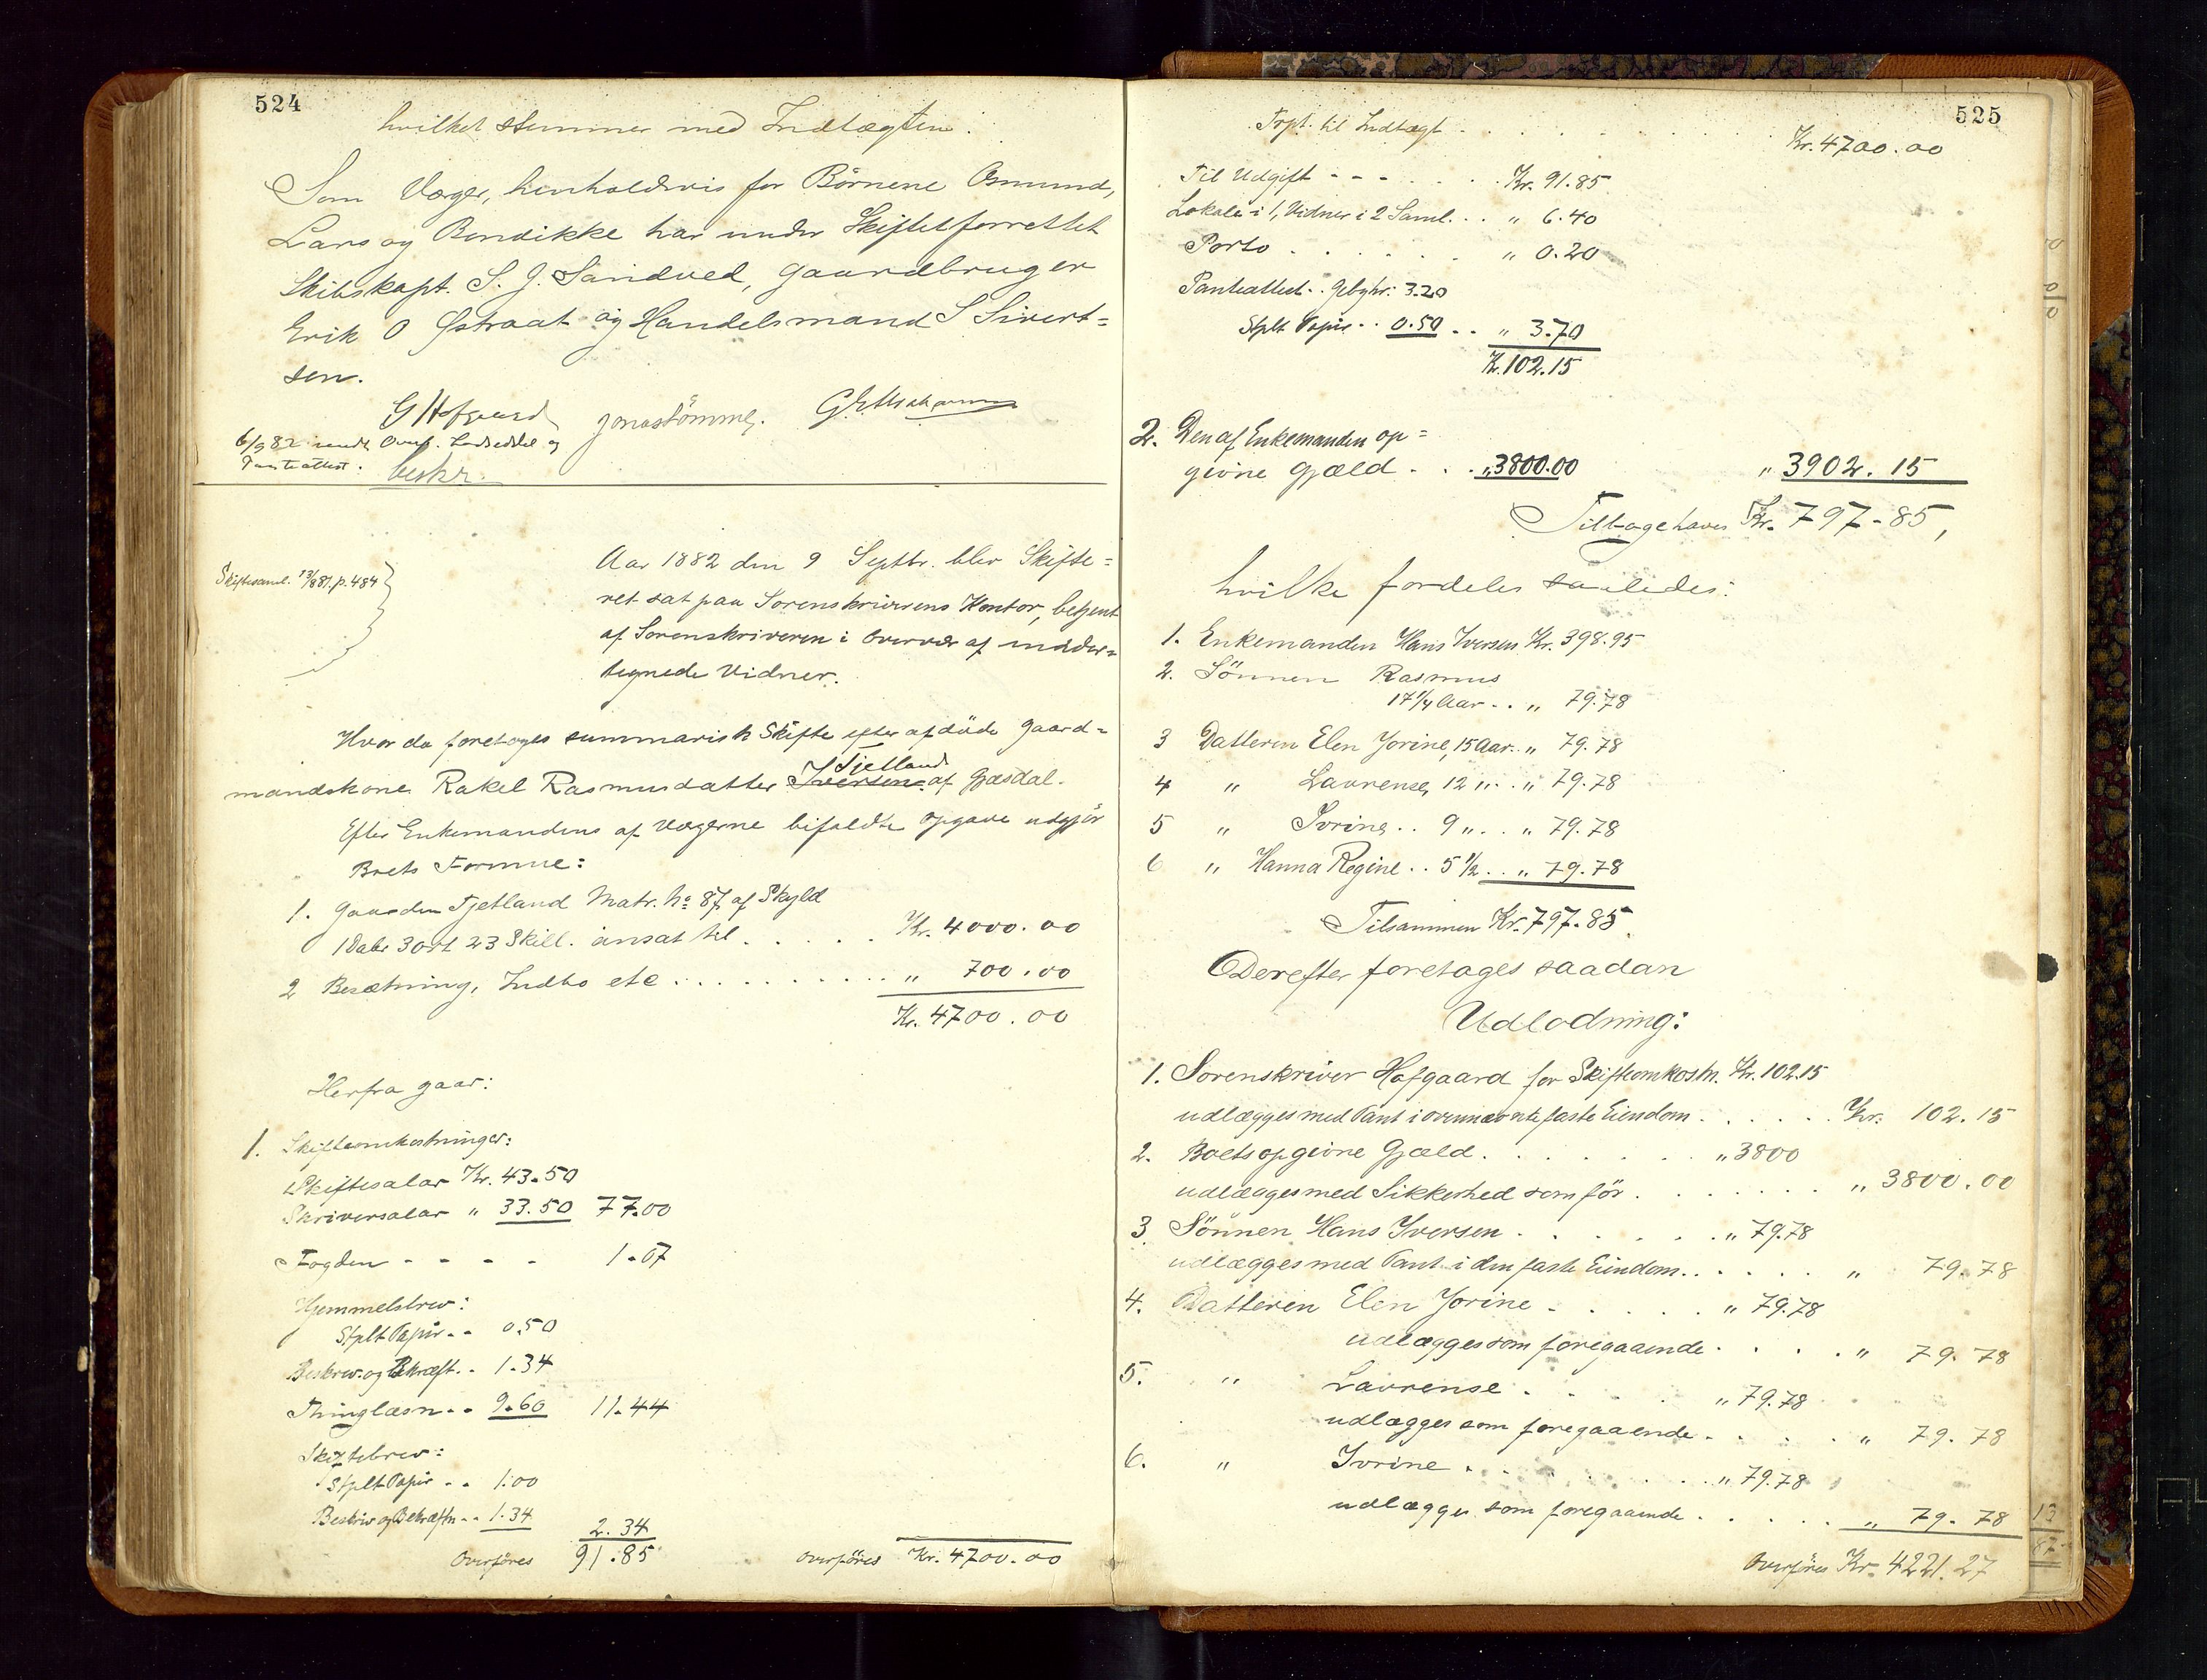 524
hvilket stemmer med Indtægten.
Som Værger, henholdsvis for Börnene Osmund,
Lars og Bendikke har under Skiftet forrettet
Skibskapt. S. J. Sandved, Gaardbruger
Erik O Østraat og Handelsmand S Sivert=
sen.
G Hofgaard
6/9 82 sendt Omf. Ludseddel og
Panteattest.
beskr.
Skiftesaml. 13/8 81. p. 484
Aar 1882 den 9 Septbr. blev Skifte=
ret sat paa Sorenskriverens Kontor, betjent
af Sorenskriveren i Overvær af under=
tegnede Vidner.
Hvor da foretoges summarisk Skifte efter afdöde Gaard=
Tjetland
mandskone Rakel Rasmusdatter Iversen af Gjæsdal.
Efter Enkemandens af Vægerne bifaldte Opgave udgjör
Boets Formue:
1. Gaarden Tjetland Matr. No 87 af Skyld
1 Daler 3 ort 23 Skill. ansat til . . . . . Kr. 4000.00
2 Besætning, Indbo etc . . . . . . . . . . " 700.00
Kr. 4700.00
Herfra gaar:
1. Skifteomkostninger:
Skiftesalar Kr. 43.50
Skriversalar " 33.50 77.00
Fogden - - - - 1.07
Hjemmelsbrev:
Stplt Papir . . 0.50
Beskriv. og Bekræft. . 1.34
Thinglæsn. . 9.60 11.44
Skiftebrev:
Stplt Papir . . 1.00
Beskriv og Bekræftn . . 1.34
2.34
Overföres 91.85 Overföres Kr. 4700.00
525
Trpt. til Indtægt . . . . . . .
Kr. 4700.00
Til Udgift - - - . . . Kr. 91.85
Lokale i 1, Vidner i 2 Saml. . . " 6.40
Porto . . . . . . " 0.20
Panteattest. . Gebyhr: 3.20
Stplt Papir . . 0.50 . . " 3.70
Kr. 102.15
2. Den af Enkemanden op=
givne Gjæld . . . " 3800.00 " 3902.15
Tilbagehaves Kr. 797-85,
hvilke fordeles saaledes:
1. Enkemanden Hans Iversen Kr. 398.95
2. Sönnen Rasmus
17 1/4 Aar . . " 79.78
3 Datteren Elen Jorine, 15 Aar . . " 79.78
4 " Laurense, 12 " . . " 79.78
5 " Ivrine . . 9 " . . " 79.78
6 " Hanna Regine . . 5 1/2 . . " 79.78
Tilsammen Kr. 797.85.
Derefter foretages saadan
Udlodning:
1. Sorenskriver Hofgaard for Skifteomkostn. Kr. 102.15
udlægges med Pant i ovennævnte faste Eiendom . . . . . . Kr. 102.15
2. Boets opgivne Gjæld . . . . . . . " 3800
udlægges med Sikkerhed som för . . . . . . . " 3800.00
3. Sönnen Hans Iversen . . . . . . " 79.78
udlægges med Pant i den faste Eiendom . . . . . . " 79.78
4. Datteren Elen Jorine . . . . . " 79.78
udlægges som foregaaende . . . . " 79.78
5. " Laurense . . . . " 79.78
udlægges som foregaaende . . . . " 79.78
6. " Ivrine . . . . . . . . " 79.78
udlægges som foregaaende . . . . . " 79.78
Overföres Kr. 4221.27